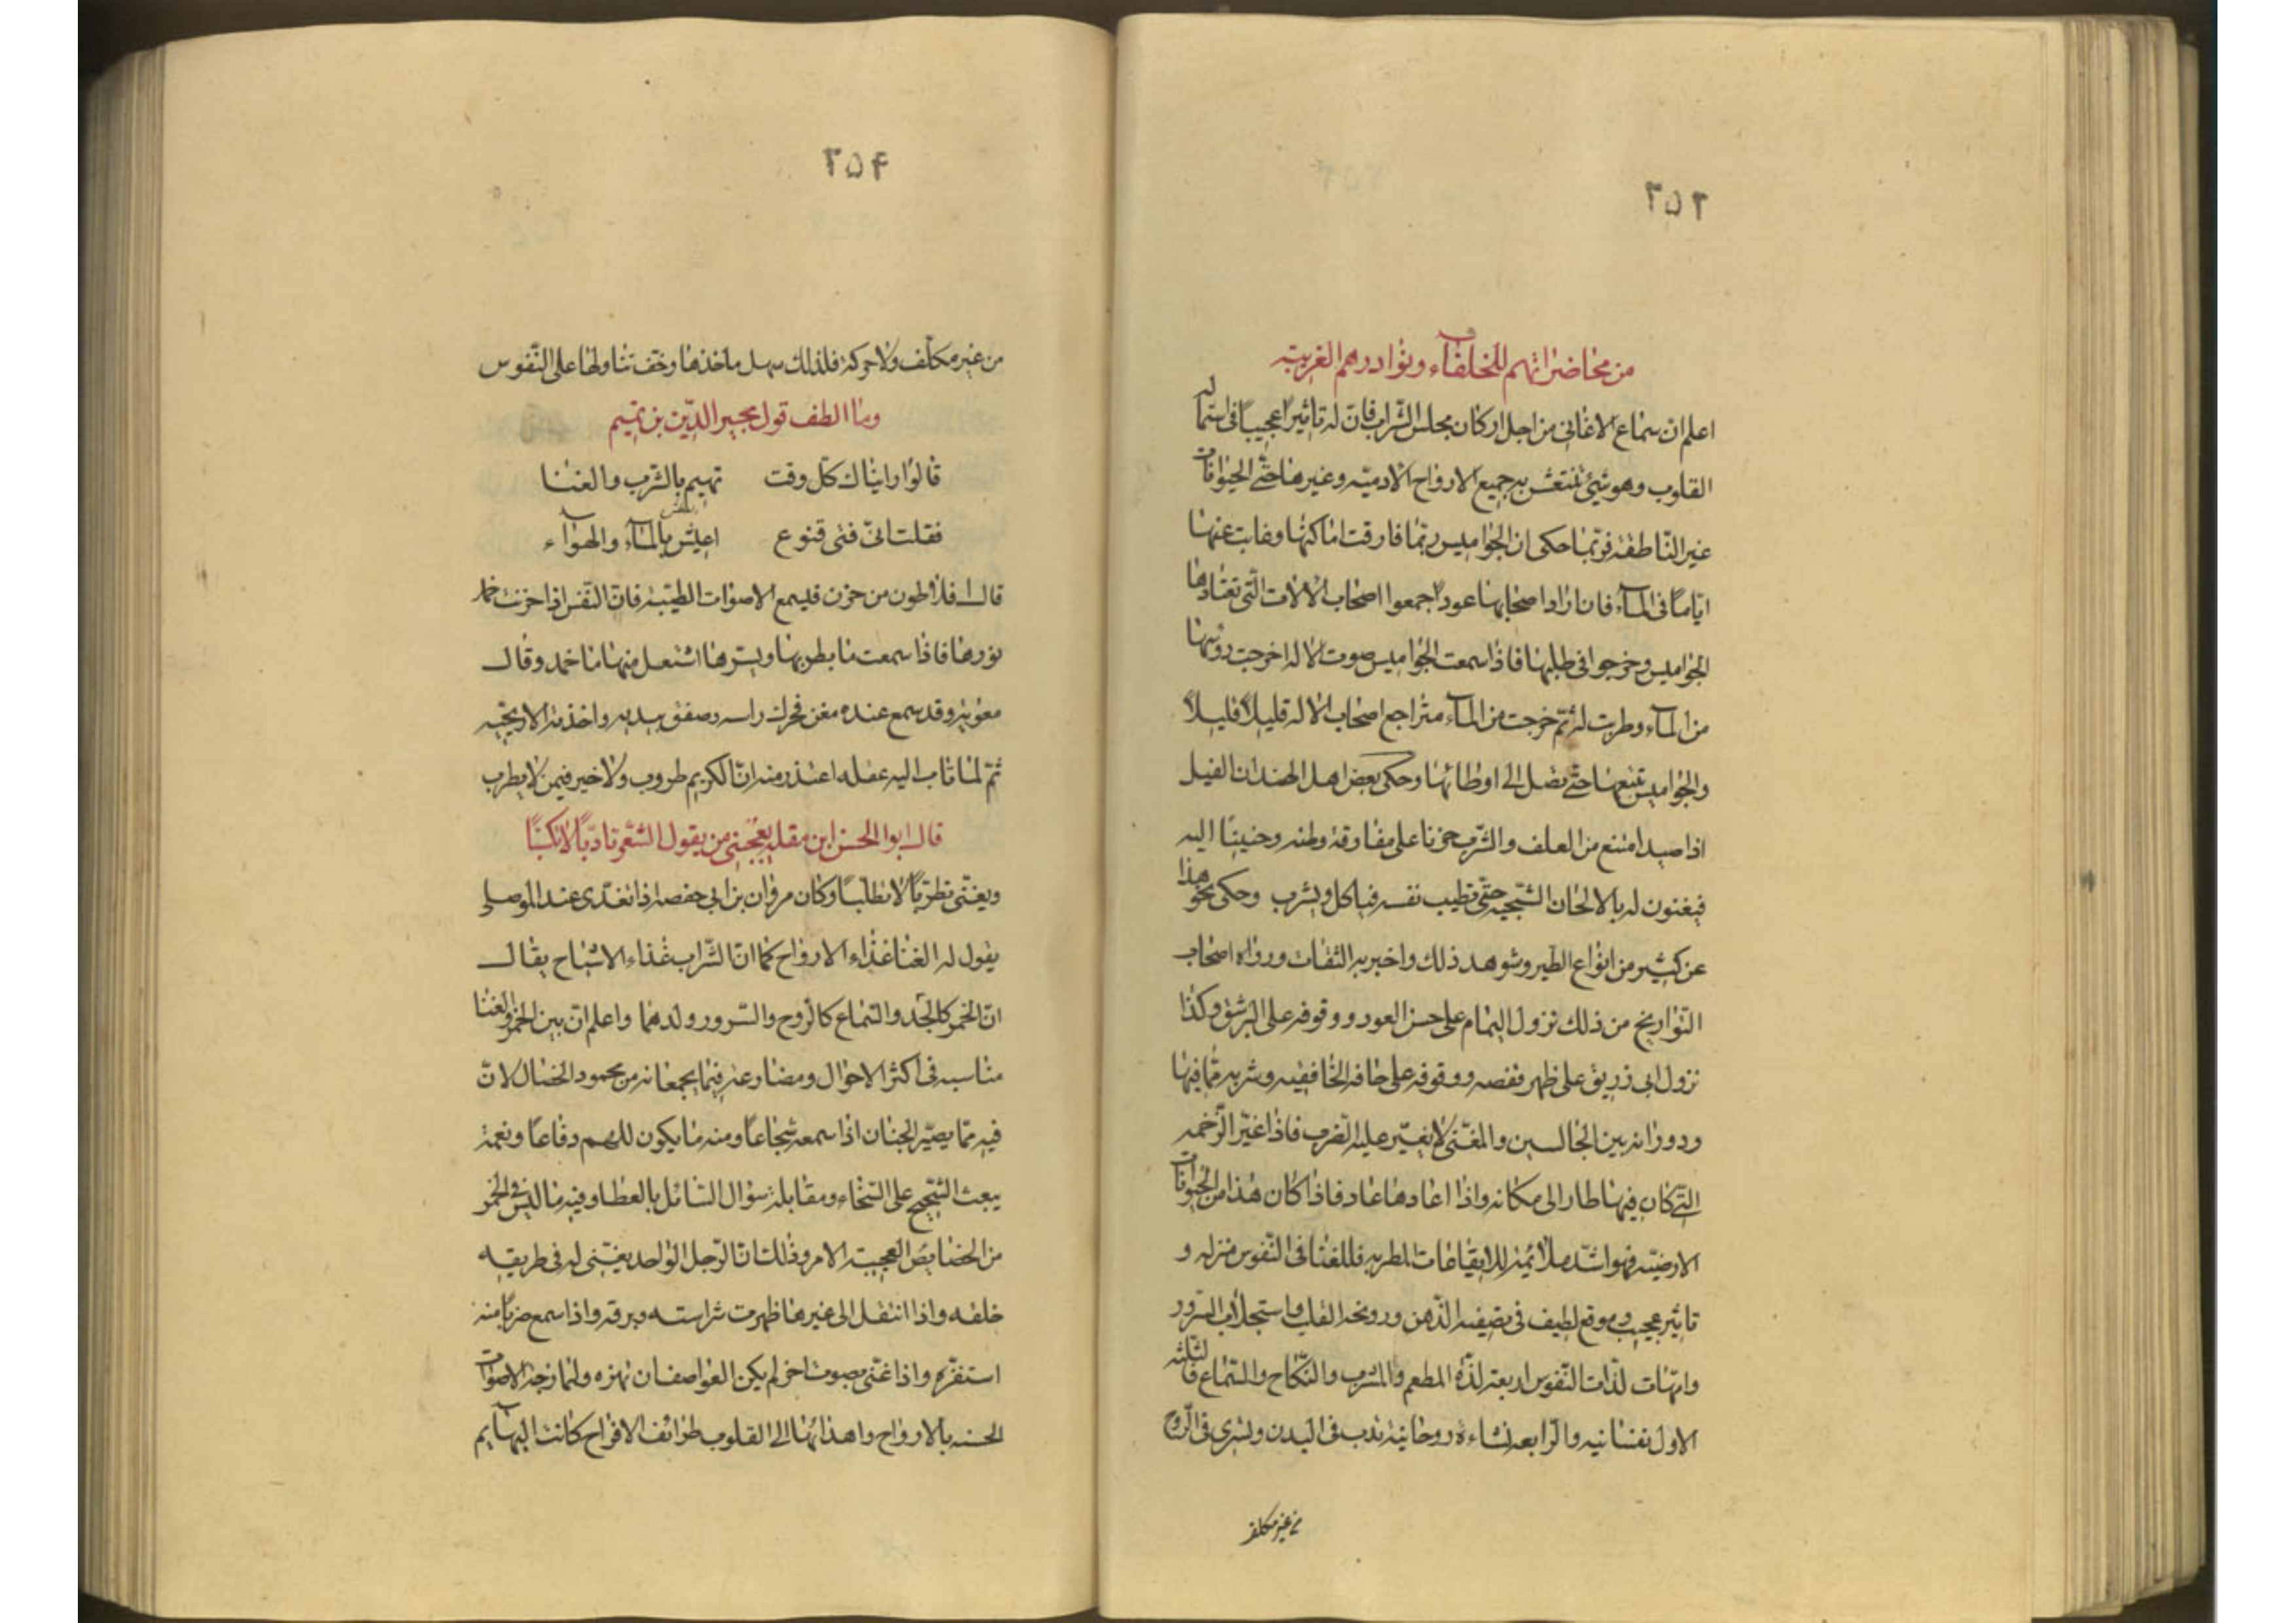 ٢٥٢
من محاضراتهم للخلفاء ونوادرهم الغريبة
اعلم ان سماع الاغانى من اجل اركان مجلس الشراب فان له تاثيرا عجيبا فى استمالة
القلوب وهو شيئ تنتعش به جميع الارواح الادميّة وغيرها حتّى الحيوانات
غير النّاطقة فربّما حكى ان الجواميس ربّما فارقت اماكنها وغابت عنها
ايّاماً فى المآء فان اراد اصحابها عودها جمعوا اصحاب الالات الّتى تعتادها
الجواميس وخرجوا فى طلبها فاذا سمعت الجواميس صوت الاله اخرجت رؤسها
من المآء وطربت له ثمّ خرجت من المآء متراجع اصحاب الاله قليلاً قليلاً
والجواميس تتبعها حتّى تصل الى اوطانها وحكى بعض اهل الهند ان الفيل
اذا صيد امتنع من العلف والشّرب حزنا على مفارقة وطنه وحنينًا اليه
فيغنون له بالالحان الشّجيه حتّى تطيب نفسه فياكل ويشرب وحكى نحو هذا
عن كثير من انواع الطير وشوهد ذلك واخبر به الثقات ورواه اصحاب
التّواريخ من ذلك نزول اليمام على حسن العود ووقوفه على البرشق وكذا
نزول ابى زريق على ظهر قفصه ووقوفه على حافة الخافقيه وشربه ممّا فيها
ودورانه بين الجالسين والمغنّى لا يغيّر عليه الضرب فاذا غيّر الرّخمه
الّتى كان فيها طار الى مكانه واذا اعادها عاد فاذا كان هذا من الحيوانات
الارضيّه فهو اشدّ ملائمة للايقاعات المطربه فللغنا فى النّفوس منزله و
تاثير عجيب وموقع لطيف فى تصفية الذّهن وروضة القلب واستجلاب السّرور
وامّهات لذّات النّفوس اربعة لذّة المطعم والمشرب والنّكاح والسّماع فالثلثه
الاول نفسانيه والرّابعه نشاءة روحانية تدب فى البدن وتسرى فى الرّوح
من غير مكلف
٢٥٤
من غير مكلّف ولا حركة فلذلك سهل ماخذها وخف تناولها على النّفوس
وما الطف قول مجير الدّين بن تميم
قالوا رايناك كلّ وقت تهيم بالشّرب والغنا
فقلت انّى فتى قنوع اعيش بالمآء والهوآء
قال افلاطون من حزن فليسمع الاصوات الطيّبة فانّ النّفس اذا حزنت خمد
نورها فاذا سمعت ما يطربها ويسرّها اشتعل منها ما خمد وقال
معوية وقد سمع عنده مغن فحرك راسه وصفق بيديه واخذته الاريحيّه
ثمّ لمّا ثاب اليه عقله اعتذر منه انّ الكريم طروب ولا خير فيمن لا يطرب
قال ابو الحسن ابن مقلة يعجبنى من يقول الشّعر تادّبًا لا تكسّبًا
ويغنّى تطربًا لا تطلّبًا وكان مروان بن ابى حفصه اذا تغدّى عند الموصلى
يقول له الغنا غذاء الارواح كما انّ الشّراب غذاء الاشباح يقال
انّ الخمر كالجسد والسّماع كالرّوح والسّرور ولدهما واعلم انّ بين الخمر والغنا
مناسبه فى اكثر الاحوال ومضارعة فيما يجمعانه من محمود الخصال لانّ
فيه ممّا يصيّر الجبان اذا سمعه شجاعًا ومنه ما يكون للهم دفاعًا ونغمة
يبعث الشّحيح على السّخاء ومقابلة سؤال السّائل بالعطا وفيه ما ليس فى الخمر
من الخصايص العجيبة الامر وذلك انّ الرّجل الواحد يغنّى له فى طريقه
خلقه واذا انتقل الى غيرها ظهرت شراسته وبرقه واذا سمع ضربًا منه
استفزّه واذا غنّى بصوت اخر لم يكن العواصف ان تهزه ولمازجة الاصوات
الحسنه بالارواح واهدائها الى القلوب طرائف الافراح كانت البهآيم